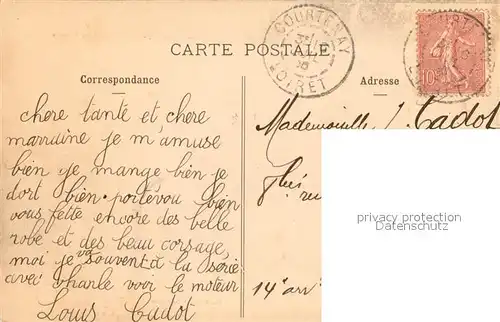 CARTE POSTALE
COURTENAY
LOIRET
10
Correspondance
Adresse
chere tante et chere
marraine je m'amuse
bien je mange bien je
dort bien. portevou bien
vous fette encore des belle
robe et des beau corsage,
moi je va souvent à la scerie
avec charle voir le moteur
Louis Cadot
Mademoiselle J. Cadot
14e arr
privacy protection
Datenschutz